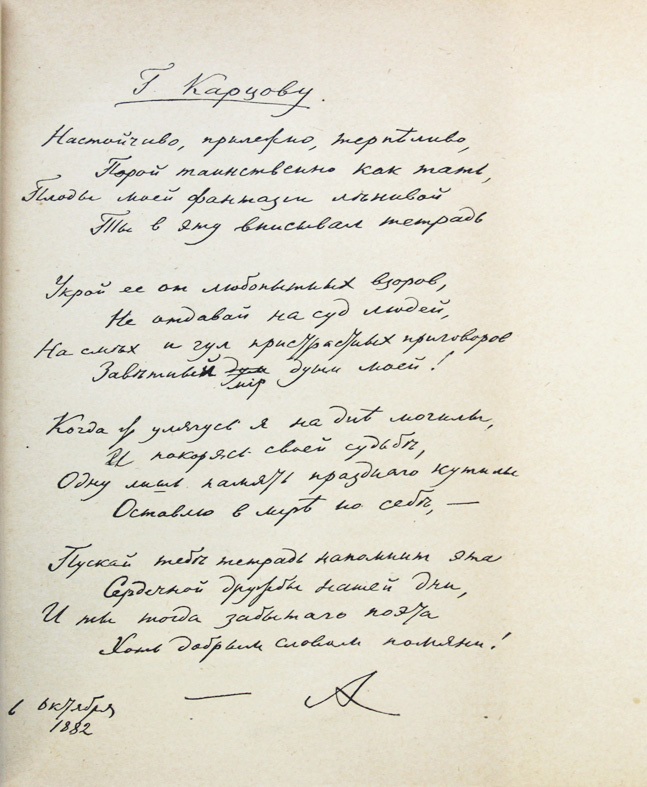 Г Карцову.
Настойчиво, прилежно, терпѣливо,
Порой таинственно как тать,
Плоды моей фантазіи лѣнивой
Ты в эту вписывал тетрадь
Укрой ее от любопытных взоров,
Не отдавай на суд людей,
На смѣх и гул пристрастных приговоров
Завѣтный мір души моей!
Когда улягусь я на днѣ могилы,
И покорясь своей судьбѣ,
Одну лишь память празднаго кутилы
Оставлю в мірѣ по себѣ, —
Пускай тебѣ тетрадь напомнит эта
Сердечной дружбы нашей дни,
И ты тогда забытаго поэта
Хоть добрым словом помяни!
— А
6 октября
1882